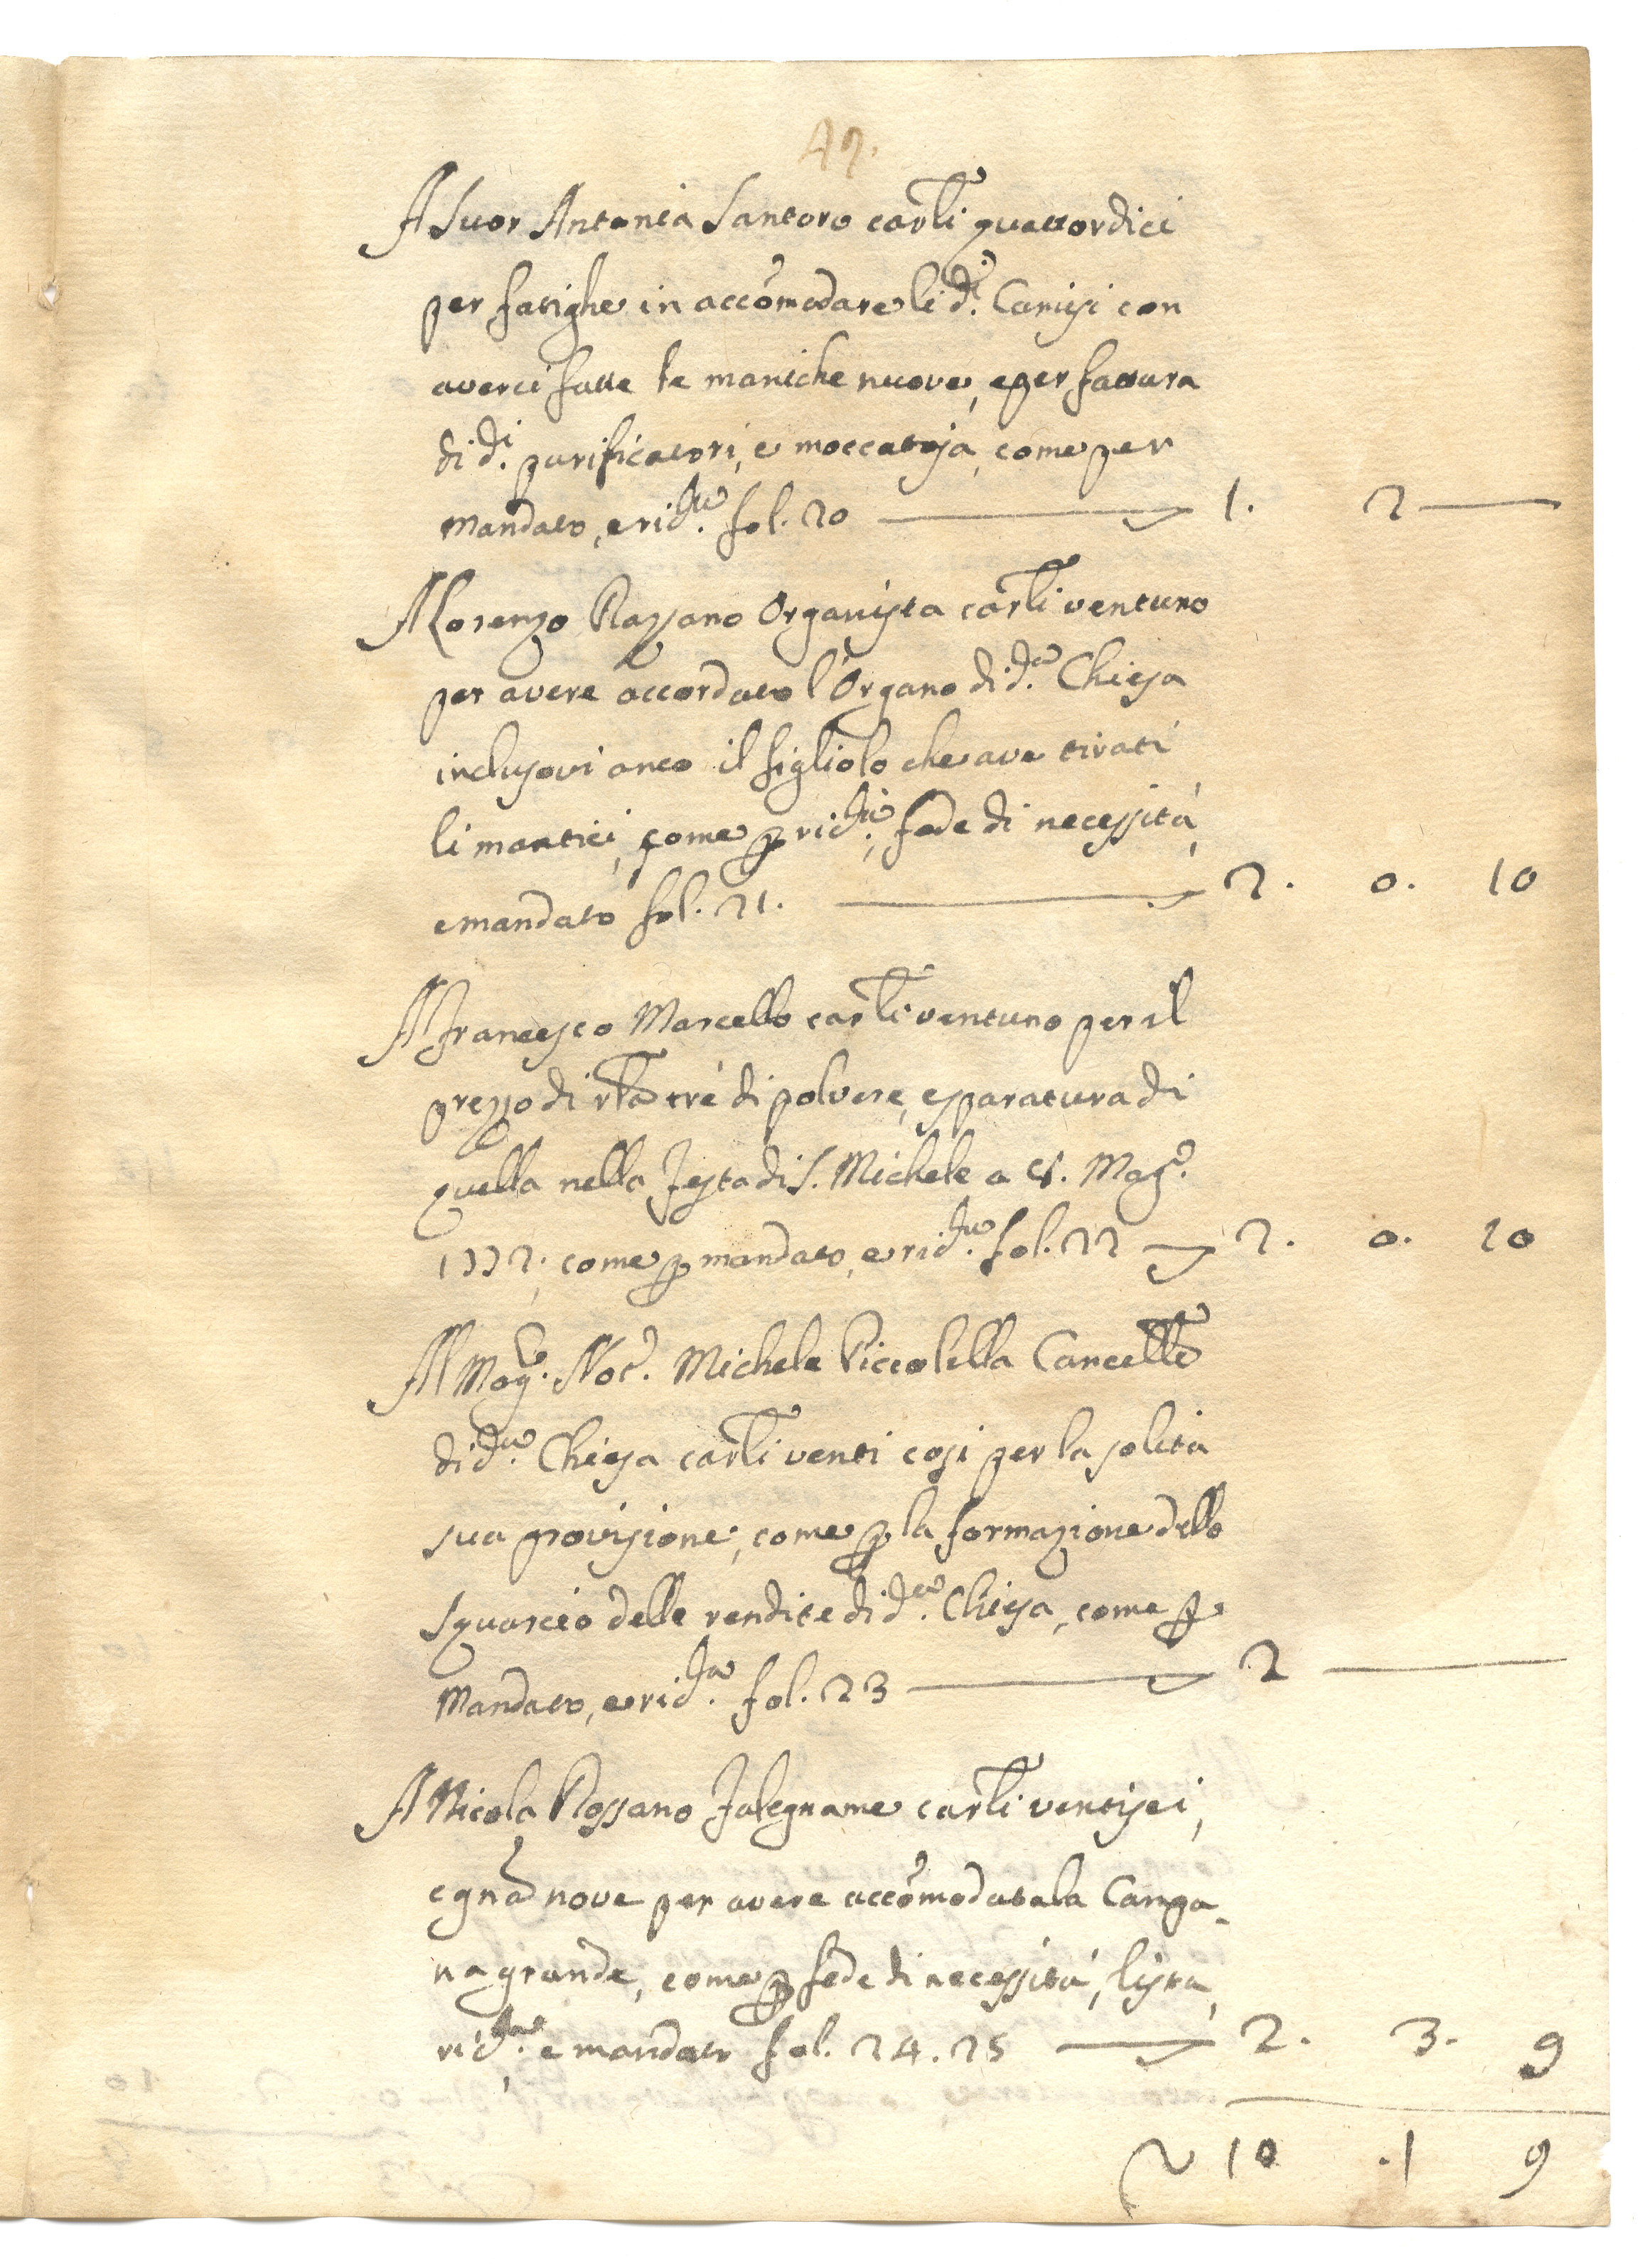 47.
A Suor Antonia Santoro carli quattordici
per fatighe in accomodare li di Camisi con
averci fatte le maniche nuove, e per fattura
di di purificatori, e moccatoja, come per
Mandato, e rida fol. 20 1. 2
A Lorenzo Rossano Organista carli ventuno
per avere accordato l'Organo di da Chiesa
inclusovi anco il figliolo che ave tirati
li mantici, come p rida, fede di necessità,
e mandato fol. 21. 2. 0. 10
A Francesco Marcello carli ventuno per il
prezzo di rla trè di polvere, e sparatura di
quella nella Festa di S. Michele a 8. Mago
1772; come p mandato, e rida fol. 22 2. 0. 10
Al Mago Notr Michele Piccolella Cancelle
di da Chiesa carli venti cosi per la solita
sua provisione, come p la formazione dello
Squarcio delle rendite di da Chiesa, come p
Mandato, e rida fol. 23 2
A Nicola Rossano Falegname carli ventisei,
e gna nove per avere accomodata la Campa-
na grande, come p fede di necessità, lista,
rida e mandato fol. 24. 25 2. 3. 9
10 .1 9